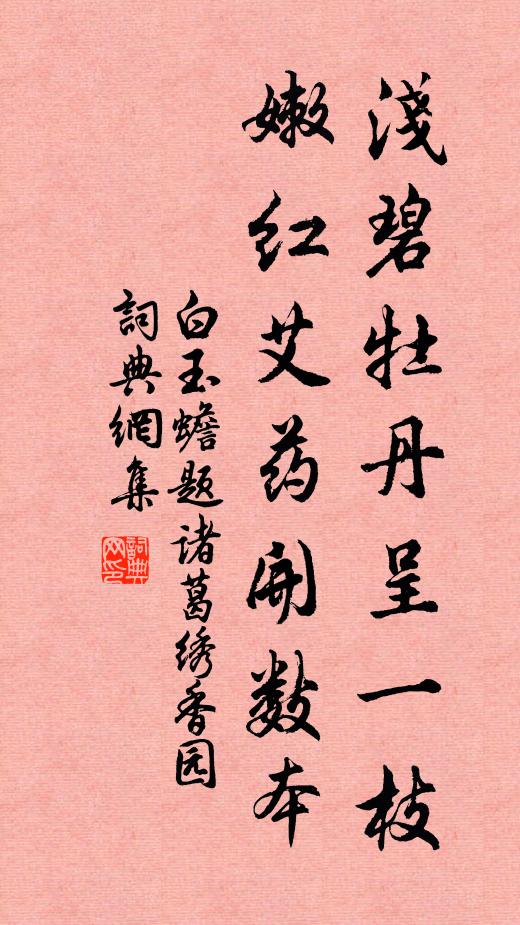 淺碧牡丹呈一枝
嫩红艾药開數本
白玉蟾题诸葛绣香园
詞典網集
詞典網印